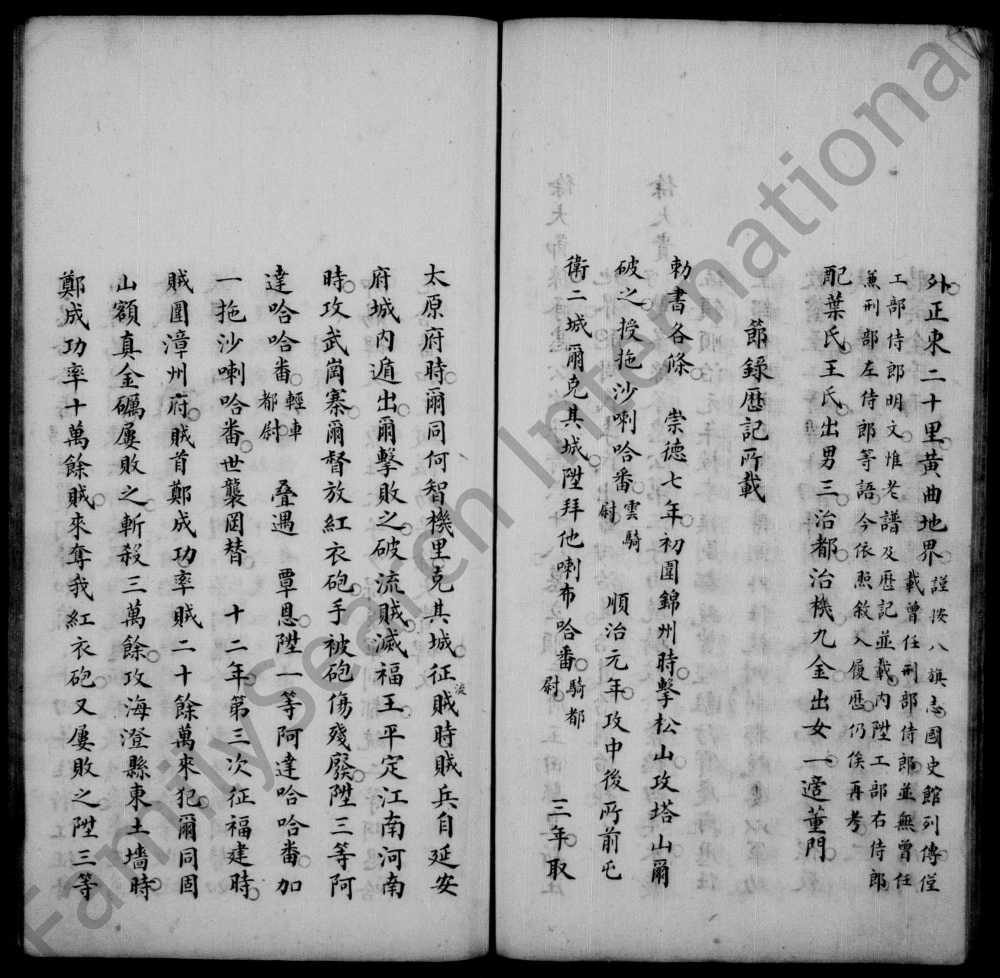 外正東二十里黃曲地界謹按八旗志國史館列傳僅
載曾任刑部侍郎並無曾任
工部侍郎明文惟老譜及歷記並載內陞工部右侍郎
兼刑部左侍郎等語今依照敘入履歷仍俟再考
配葉氏王氏出男三治都治機九金出女一適董門
節錄歷記所載
勅書各條　崇德七年初圍錦州時擊松山攻塔山爾
破之授拖沙喇哈番雲騎尉　順治元年攻中後所前屯
衛二城爾克其城陞拜他喇布哈番騎都尉　三年取
太原府時爾同何智機里克其城征流賊時賊兵自延安
府城內遁出爾擊敗之破流賊滅福王平定江南河南
時攻武崗寨爾督放紅衣砲手被砲傷殘廢陞三等阿
達哈哈番輕車都尉　叠遇　覃恩陞一等阿達哈哈番加
一拖沙喇哈番世襲罔替　十二年第三次征福建時
賊圍漳州府賊首鄭成功率賊二十餘萬來犯爾同固
山額真金礪屢敗之斬殺三萬餘攻海澄縣東土墻時
鄭成功率十萬餘賊來奪我紅衣砲又屢敗之陞三等
FamilySearch International